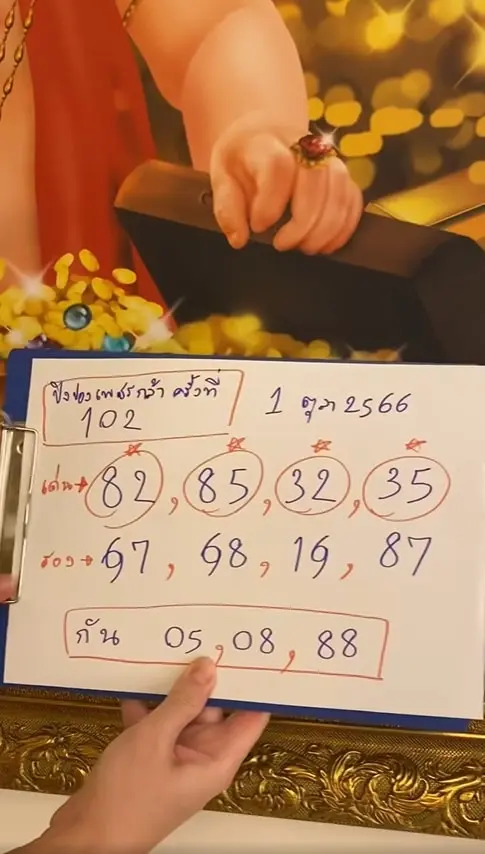 ปิงปองเพชรกล้า ครั้งที่
102
1 ตุลา 2566
เด่น → 82, 85, 32, 35
รอง → 97, 98, 19, 87
กัน 05, 08, 88